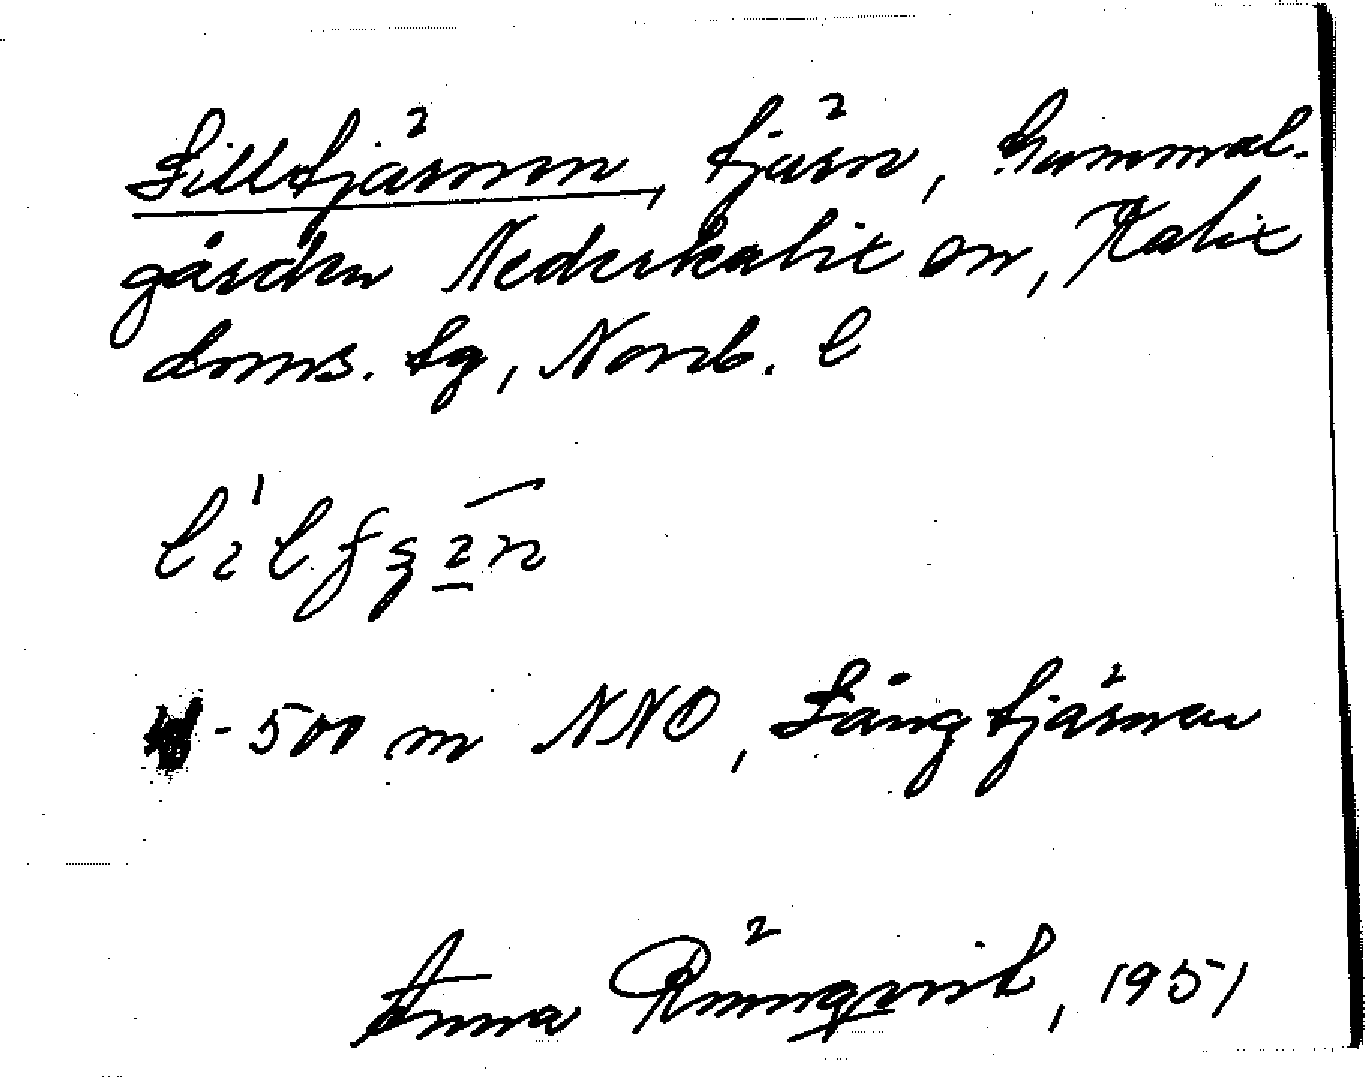 Lilltjärnen, tjärn, Gammel-
gården Nederkalix sn, Kalix
doms. tg, Norrb. l
- 500 m NNO, Långtjärnen
Anna Rönnqvist, 1951